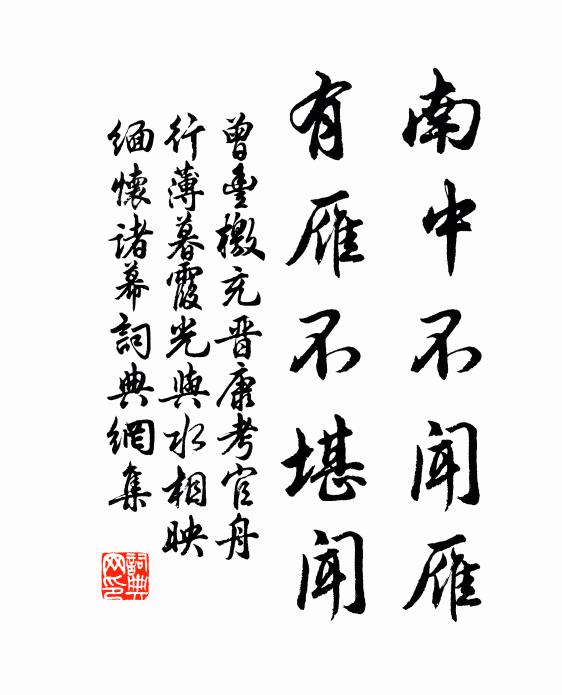 南中不闻雁
有雁不堪闻
曾豊檄充晋康考官舟
行薄暮霞光與水相映
缅懷诸幕詞典網集
詞典
网印